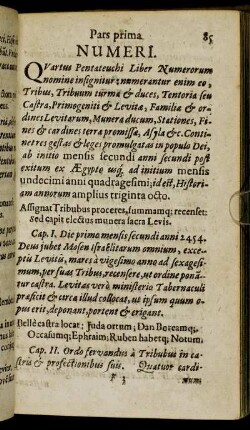 Pars prima. 85
NUMERI.
QVartus Pentateuchi Liber Numerorum
nomine insignitur: numerantur enim eo,
Tribus, Tribuum turmæ & duces, Tentoria seu
Castra, Primogeniti & Levitæ, Familiæ & or-
dines Levitarum, Munera ducum, Stationes, Fi-
nes & cardines terræ promissæ, Asyla &c. Conti-
net res gestas & leges promulgatas in populo Dei,
ab initio mensis secundi anni secundi post
exitum ex Ægypto usq; ad initium mensis
undecimi anni quadragesimi; id est, Histori-
am annorum amplius triginta octo.
Assignat Tribubus proceres, summamq; recenset:
Sed capit electus munera sacra Levis.
Cap. I. Die primo mensis secundi anni 2454.
Deus jubet Mosen Israëlitarum omnium, exce-
ptis Levitis, mares à vigesimo anno ad sexage-
simum, per suas Tribus, recensere, ut ordine ponã-
tur castra. Levitas verò ministerio Tabernaculi
præficit & circa illud collocat, ut ipsum quum o-
pus erit, deponant, portent & erigant.
Bellè castra locat; Juda ortum; Dan Boreamq;
Occasumq; Ephraim; Ruben habetq; Notum.
Cap. II. Ordo servandus à Tribubus in ca-
stris & profectionibus suis. Quatuor cardi-
F 3 num